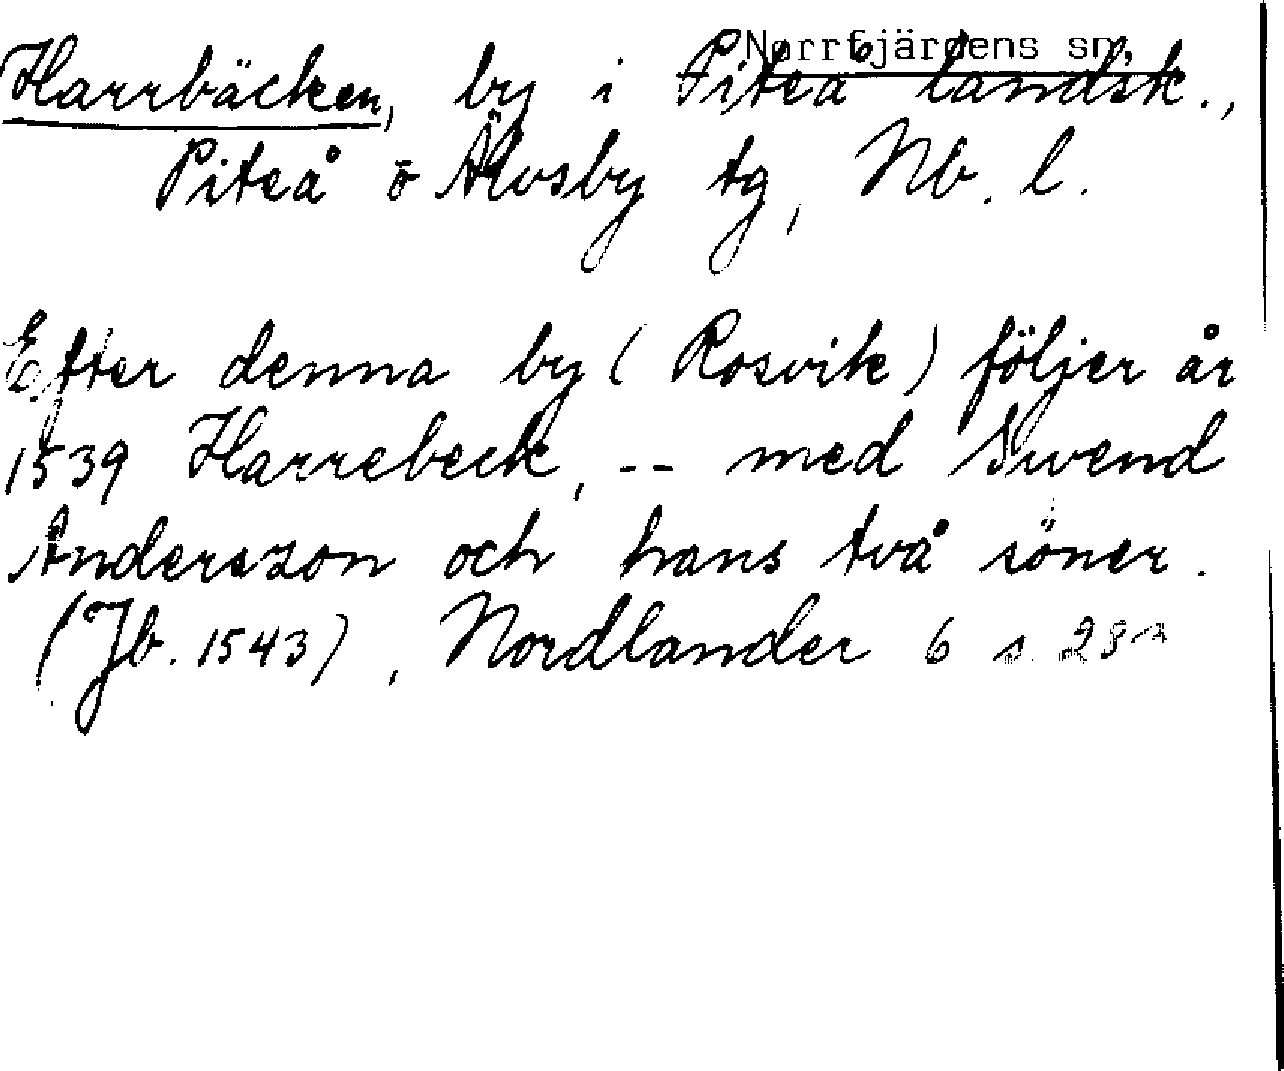 Norrfjärdens sn.
Harrbäcken, by i Piteå landsk.,
Piteå o Älvsby tg, Nb. l.
Efter denna by (Rosvik) följer år
1539 Harrebeck, -- med Swend
Andersson och hans två söner.
(Jb. 1543), Nordlander 6 s.